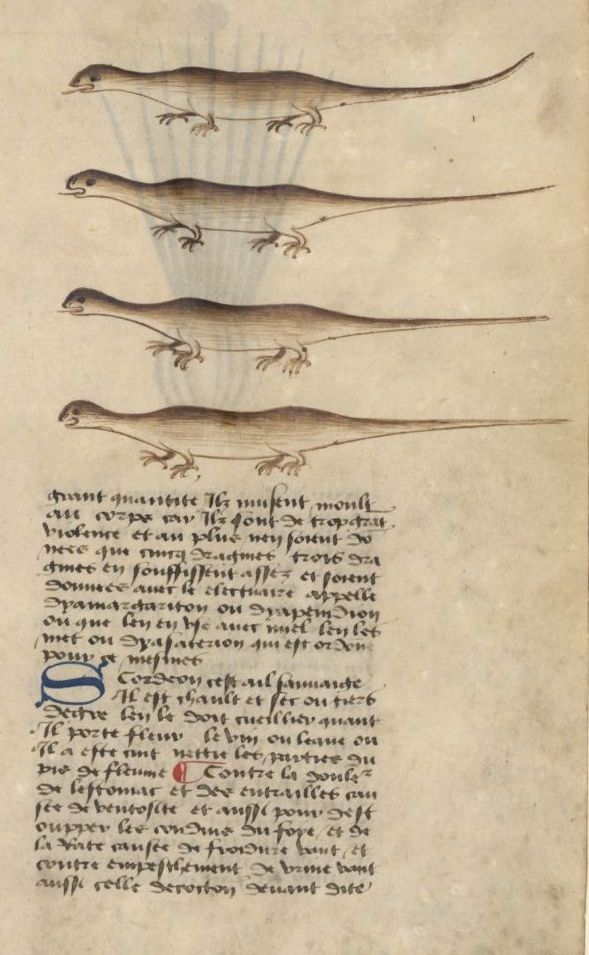 grant quantite Ilz nuisent moult
au corps car Ilz sont de trop grāt
violence et au plus nen soient dō
nees que cincq dragmes trois dra
gmes en souffissent assez et soient
donnees avec le electuaire appelle
dyamargariton ou dyapendion
ou que len en vse avec miel len les
met ou dyasaterion qui est ordone
pour ce mesmes
Scordeon cest ail sauuaige
Il est chault et sec ou tiers
degre len le doit cueillier quant
Il porte fleur le vin ou leaue ou
Il a este cuit nettie les parties du
pis de fleume ¶ Contre la doule²
de lestomac et des entrailles cau
see de ventosite et aussi pour dest
oupper les conduis du foye et de
la Rate causee de froidure vault et
contre empeschement de vrine vault
aussi celle decoction devant dite